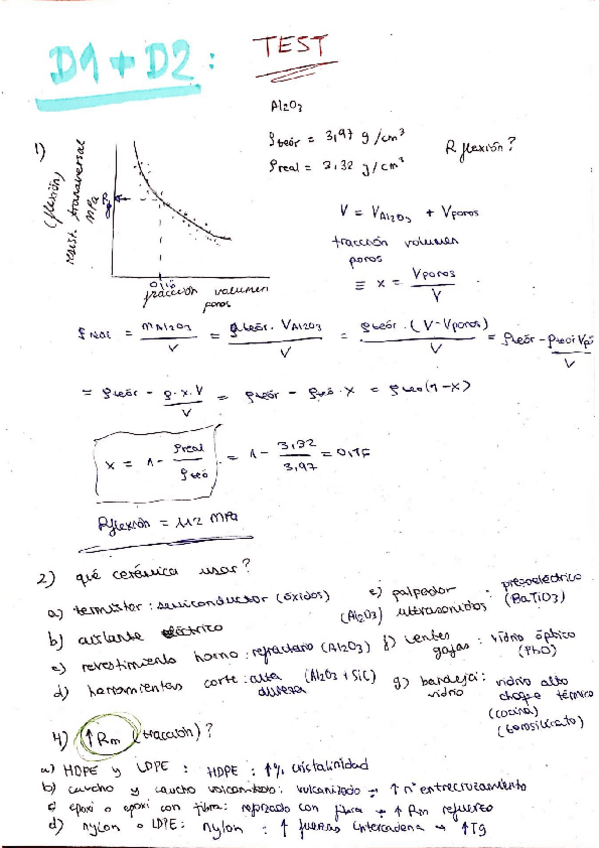 D1 + D2 : TEST
Al2O3
1)
ρteór = 3,97 g/cm³
ρreal = 3,32 g/cm³
R flexión?
(flexión)
resist. transversal
MPa
0,16
fracción volumen
poros
V = VAl2O3 + Vporos
fracción volumen
poros
≡ x = Vporos / V
ρreal = mAl2O3 / V = ρteór · VAl2O3 / V = ρteór · (V - Vporos) / V = ρteór -
= ρteór - ρ·x·V / V = ρteór - ρteó · x = ρteo(1-x)
x = 1 - ρreal / ρteó = 1 - 3,32 / 3,97 = 0,16
Rflexión = 112 MPa
2) qué cerámica usar?
a) termistor : semiconductor (óxidos)
b) aislante eléctrico (Al2O3)
c) revestimiento horno : refractario (Al2O3)
d) herramientas corte : alta dureza (Al2O3 + SiC)
e) palpador ultrasonidos : piezoeléctrico (BaTiO3)
f) lentes gafas : vidrio óptico (PbO)
g) bandeja vidrio : vidrio alto choque térmico (cocina) (borosilicato)
4) ↑Rm (tracción)?
a) HDPE y LDPE : HDPE : ↑% cristalinidad
b) caucho y caucho vulcanizado : vulcanizado → ↑ nº entrecruzamiento
c) epoxi o epoxi con fibra : reforzado con fibra → ↑ Rm refuerzo
d) nylon o LDPE : nylon : ↑ fuerzas intercadena → ↑Tg